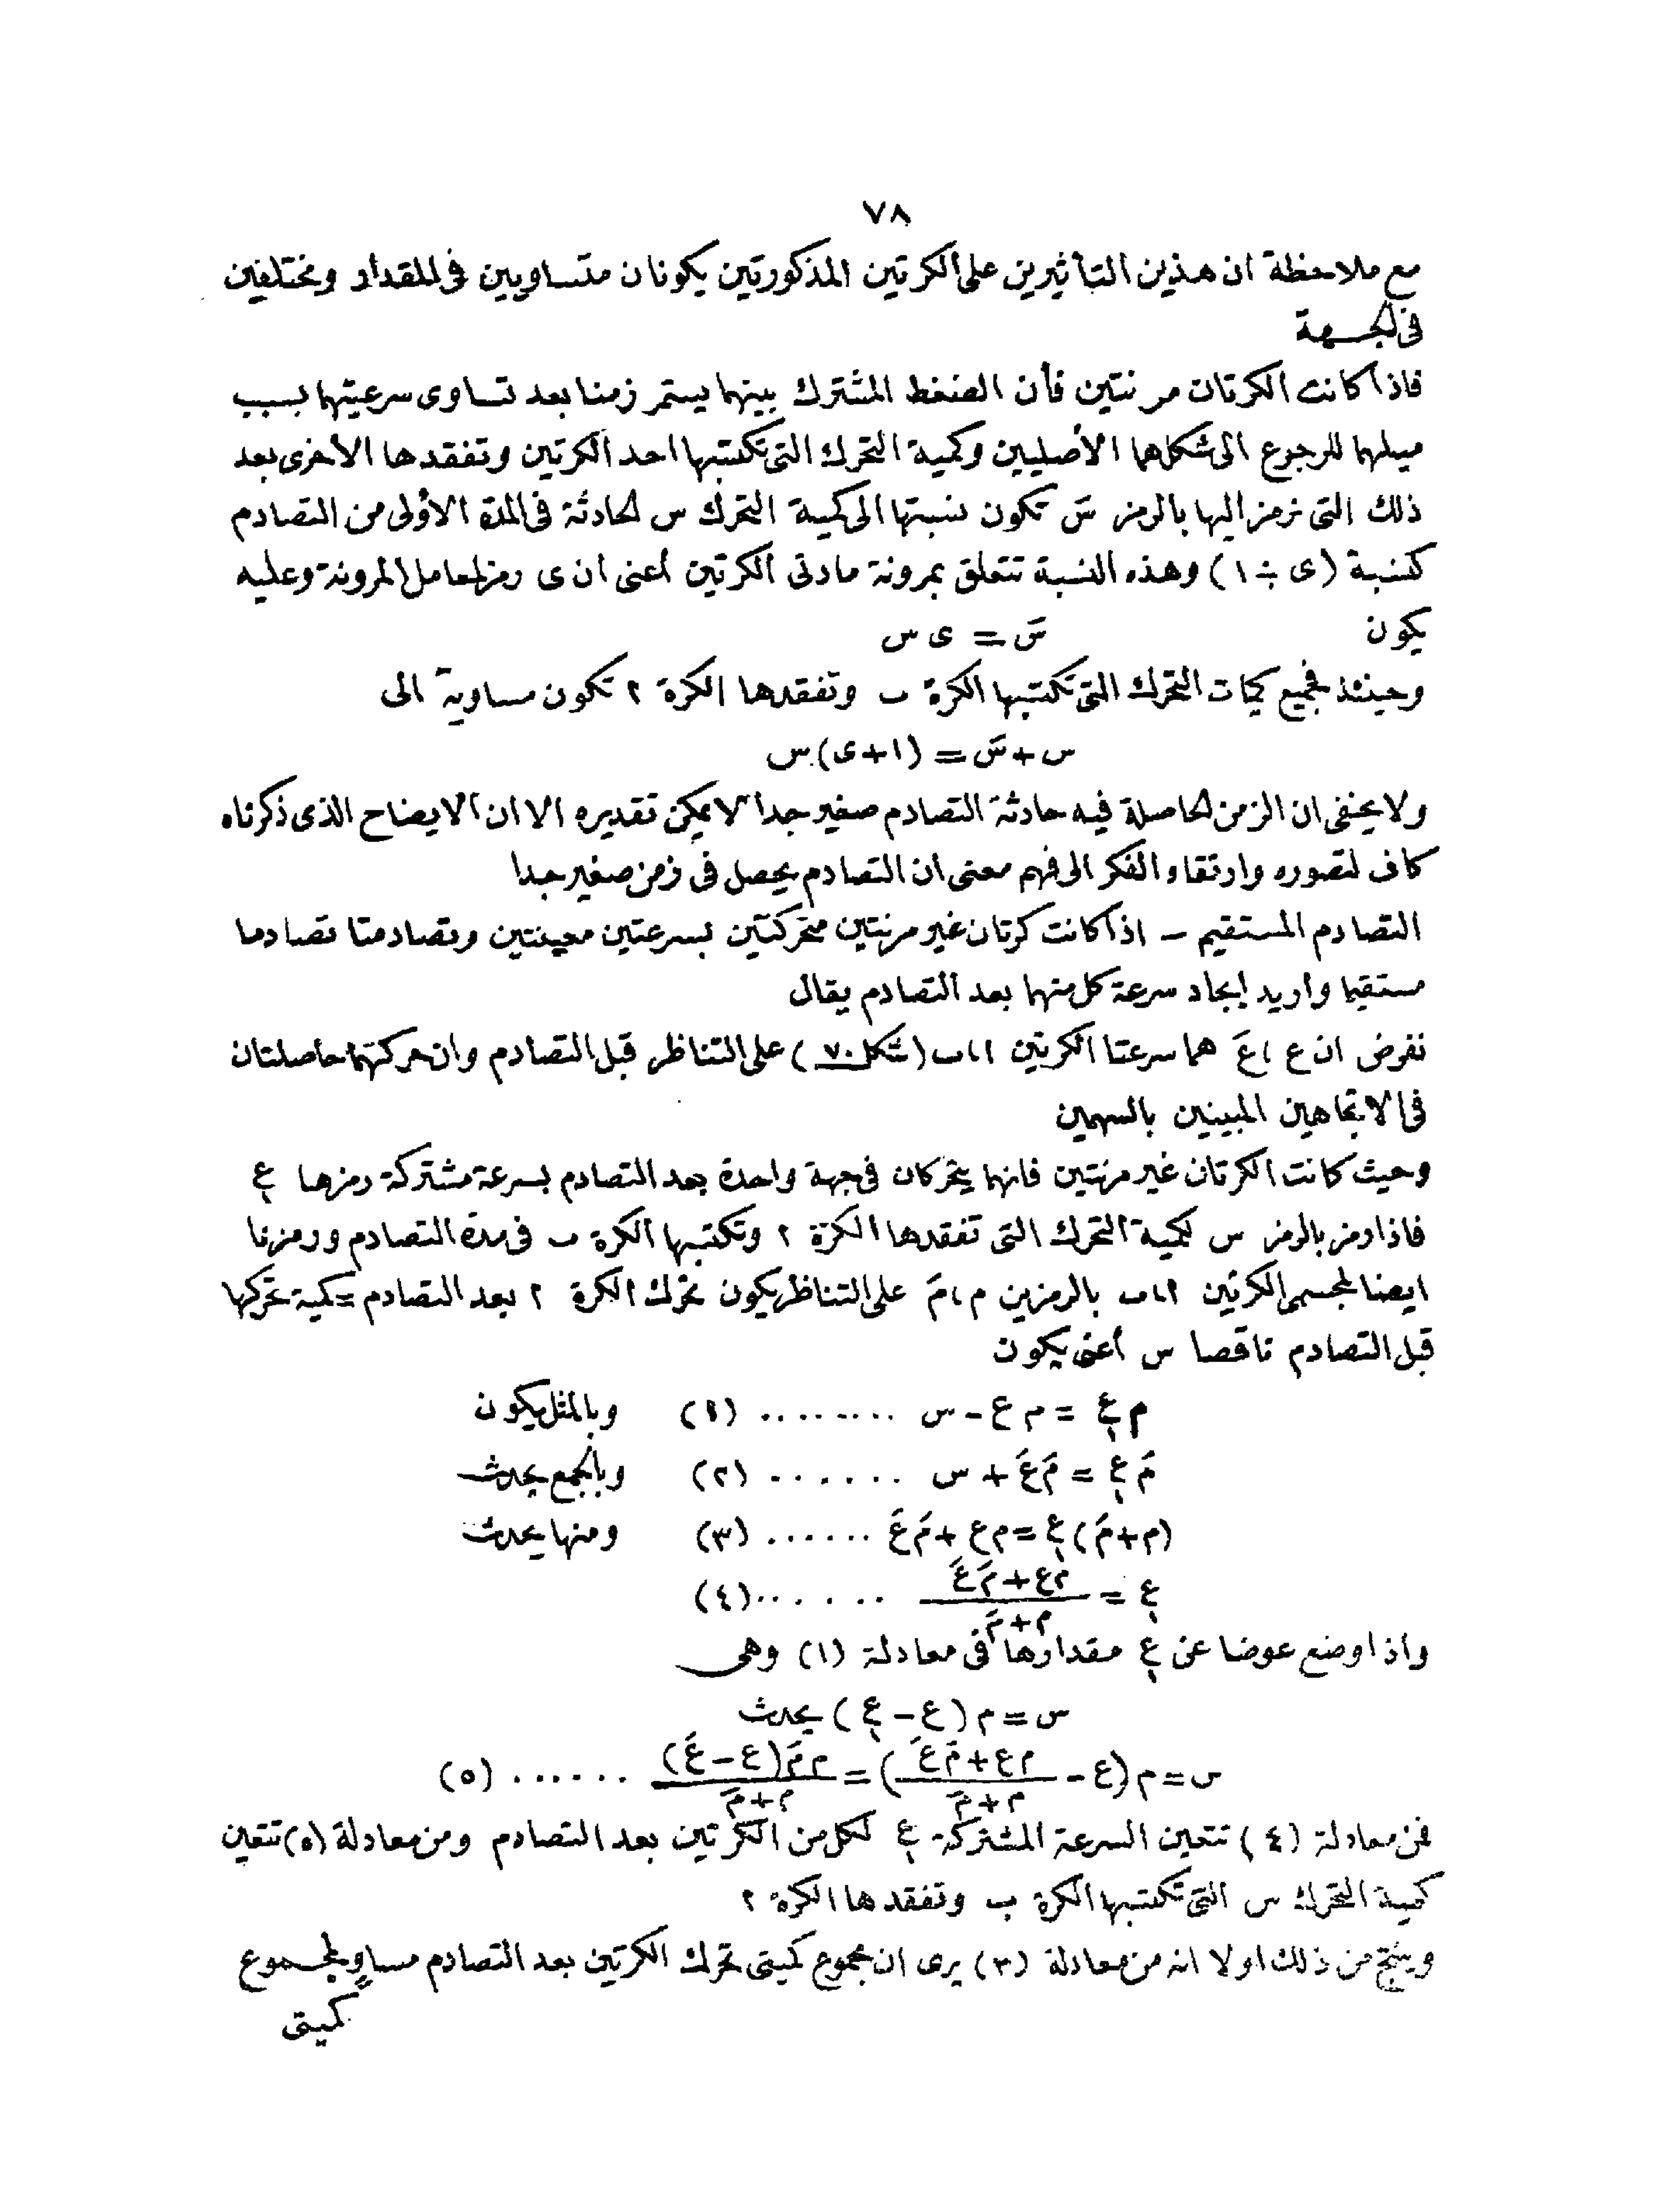 ٧٨
مع ملاحظة ان هذين التأثيرين على الكرتين المذكورتين يكونان متساويين فى المقدار ومختلفين
فى الجهة
فاذا كانت الكرتان مرنتين فأن الضغط المشترك بينهما يستمر زمنا بعد تساوى سرعتيهما بسبب
ميلهما للرجوع الى شكلاهما الأصليين وكمية التحرك التى تكتسبها احد الكرتين وتفقدها الاخرى بعد
ذلك التى نرمز اليها بالرمز سَ تكون نسبتها الى كمية التحرك س الحادثة فى المدة الأولى من التصادم
كنسبة (ى ÷ ١) وهذه النسبة تتعلق بمرونة مادتى الكرتين أعنى ان ى رمز لمعامل المرونة وعليه
يكون سَ = ى س
وحينئذ فجميع كميات التحرك التى تكتسبها الكرة ب وتفقدها الكرة ا تكون مساوية الى
س + سَ = (١+ى) س
ولا يخفى ان الزمن الحاصلة فيه حادثة التصادم صغير جدا لا يمكن تقديره الا ان الايضاح الذى ذكرناه
كاف لتصوره وارتقاء الفكر الى فهم معنى ان التصادم يحصل فى زمن صغير جدا
التصادم المستقيم – اذا كانت كرتان غير مرنتين متحركتين بسرعتين معينتين وتصادمتا تصادما
مستقيما واريد ايجاد سرعة كل منهما بعد التصادم يقال
نفرض ان ع ، عَ هما سرعتا الكرتين ا ، ب (شكل ٧٠) على التناظر قبل التصادم وان حركتهما حاصلتان
فى الاتجاهين المبينين بالسهمين
وحيث كانت الكرتان غير مرنتين فانهما يتحركان فى جهة واحدة بعد التصادم بسرعة مشتركة رمزها ع₁
فاذا رمز بالرمز س لكمية التحرك التى تفقدها الكرة ا وتكتسبها الكرة ب فى مدة التصادم ورمزنا
ايضا لمجسمى الكرتين ا ، ب بالرمزين م ، مَ على التناظر يكون تحرك الكرة ا بعد التصادم = كمية تحركها
قبل التصادم ناقصا س أعنى يكون
م ع₁ = م ع - س ......... (١) وبالمثل يكون
مَ ع₁ = مَ عَ + س ...... (٢) وبالجمع يحدث
(م + مَ) ع₁ = م ع + مَ عَ ...... (٣) ومنها يحدث
ع₁ = (م ع + مَ عَ) / (م + مَ) ...... (٤)
واذا وضع عوضا عن ع₁ مقدارها فى معادلة (١) وهى
س = م (ع - ع₁) يحدث
س = م (ع - (م ع + مَ عَ) / (م + مَ)) = م مَ (ع - عَ) / (م + مَ) ...... (٥)
فمن معادلة (٤) تتعين السرعة المشتركة ع₁ لكل من الكرتين بعد التصادم ومن معادلة (٥) تتعين
كمية التحرك س التى تكتسبها الكرة ب وتفقدها الكرة ا
وينتج من ذلك اولا انه من معادلة (٣) يرى ان مجموع كميتى تحرك الكرتين بعد التصادم مساوٍ لمجموع
كميتى